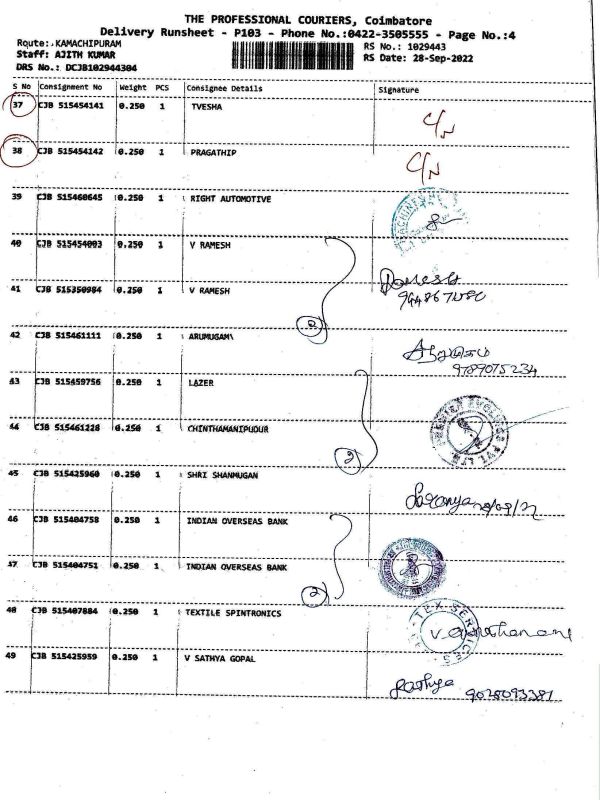 THE PROFESSIONAL COURIERS, Coimbatore
Delivery Runsheet - P103 - Phone No.:0422-3505555 - Page No.:4
Route: KAMACHIPURAM
RS No.: 1029443
Staff: AJITH KUMAR
RS Date: 28-Sep-2022
DRS No.: DCJB102944304
S No Consignment No Weight PCS Consignee Details Signature
37 CJB 515454141 0.250 1 TVESHA
C/N
38 CJB 515454142 0.250 1 PRAGATHIP
C/N
39 CJB 515460645 0.250 1 RIGHT AUTOMOTIVE
40 CJB 515454003 0.250 1 V RAMESH
41 CJB 515350984 0.250 1 V RAMESH
Ramesh
2
42 CJB 515461111 0.250 1 ARUMUGAM\
9789075234
43 CJB 515459756 0.250 1 LAZER
44 CJB 515461228 0.250 1 CHINTHAMANIPUDUR
2
45 CJB 515425960 0.250 1 SHRI SHANMUGAN
Saranya
46 CJB 515404758 0.250 1 INDIAN OVERSEAS BANK
47 CJB 515404751 0.250 1 INDIAN OVERSEAS BANK
2
48 CJB 515407884 0.250 1 TEXTILE SPINTRONICS
TEX SERVICES
49 CJB 515425959 0.250 1 V SATHYA GOPAL
Sathya